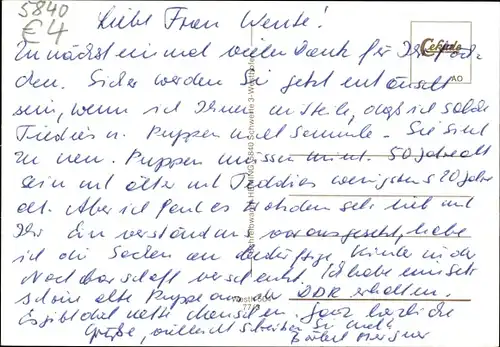 5840
€4
Liebe Frau Wente!
Zunächst einmal vielen Dank für Ihr
den. Sicher werden Sie jetzt enttäuscht
sein, wenn ich Ihnen mitteile, daß ich solche
Teddies u. Puppen nicht sammle. Sie sind
zu neu. Puppen müssen mind. 50 Jahre alt
sein und älter und Teddies wenigstens 20 Jahre
alt. Aber ich
Ihr Einverständnis vorausgesetzt, habe
ich die Sachen an bedürftige Kinder in der
Nachbarschaft verschenkt. Ich habe
schöne alte Puppe aus der DDR erhalten.
Es gibt doch nette Menschen. Ganz herzliche
Grüße, vielleicht schreiben Sie mal?
Cekade
AO
5840 Schwerte 3-Westhofen